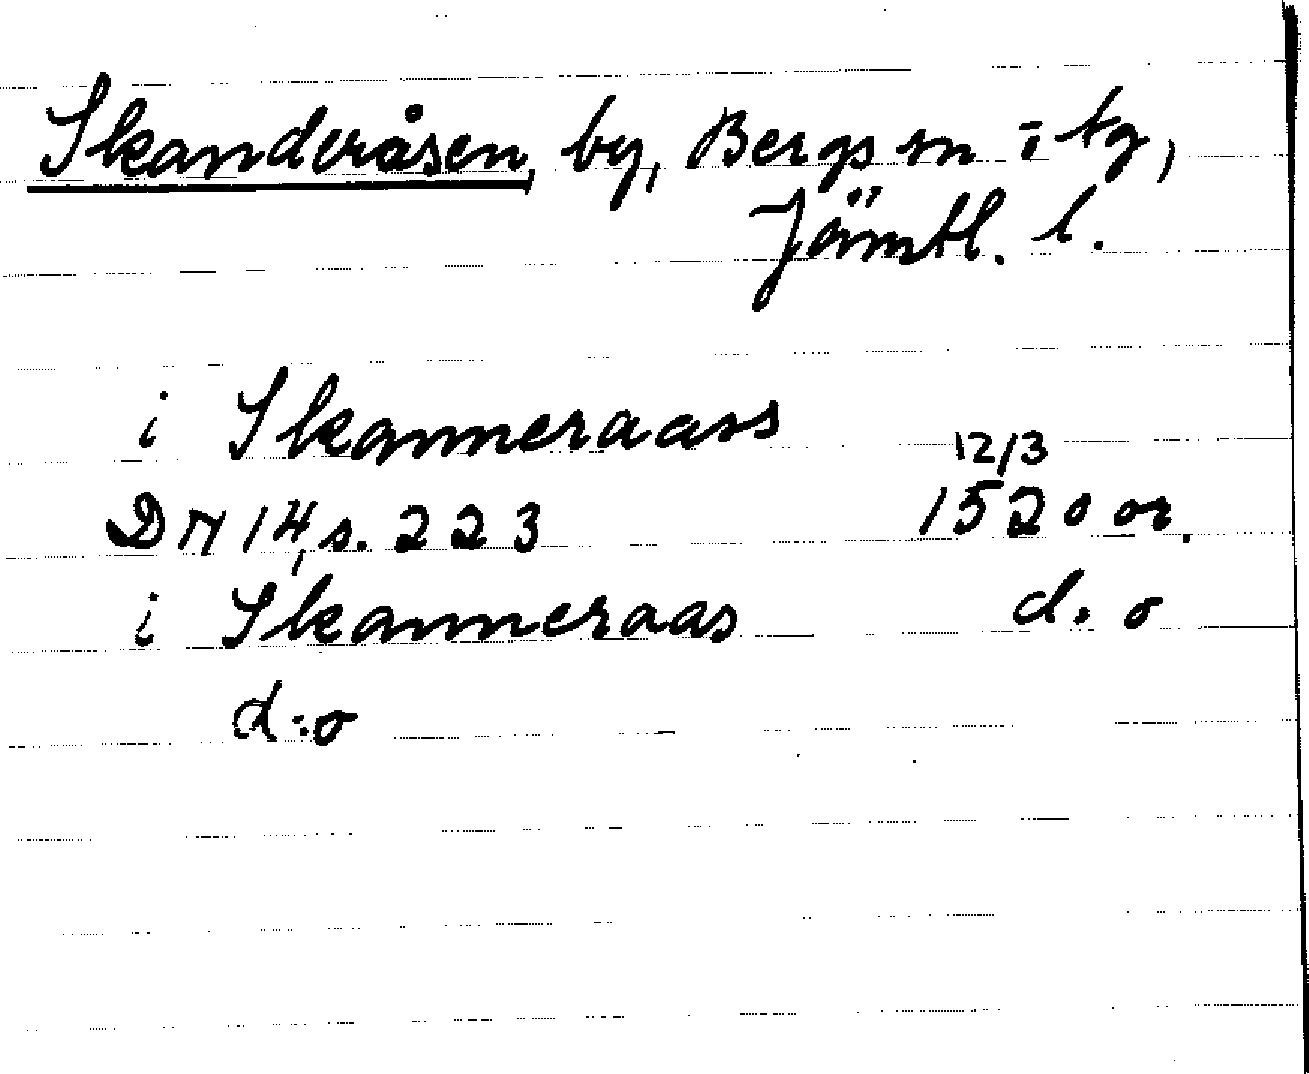 Skanderåsen, by, Bergs sn o tg,
Jämtl. l.
i Skanneraass
12/3
DN 14, s. 223 1520 or.
i Skanneraas d. o
d:o